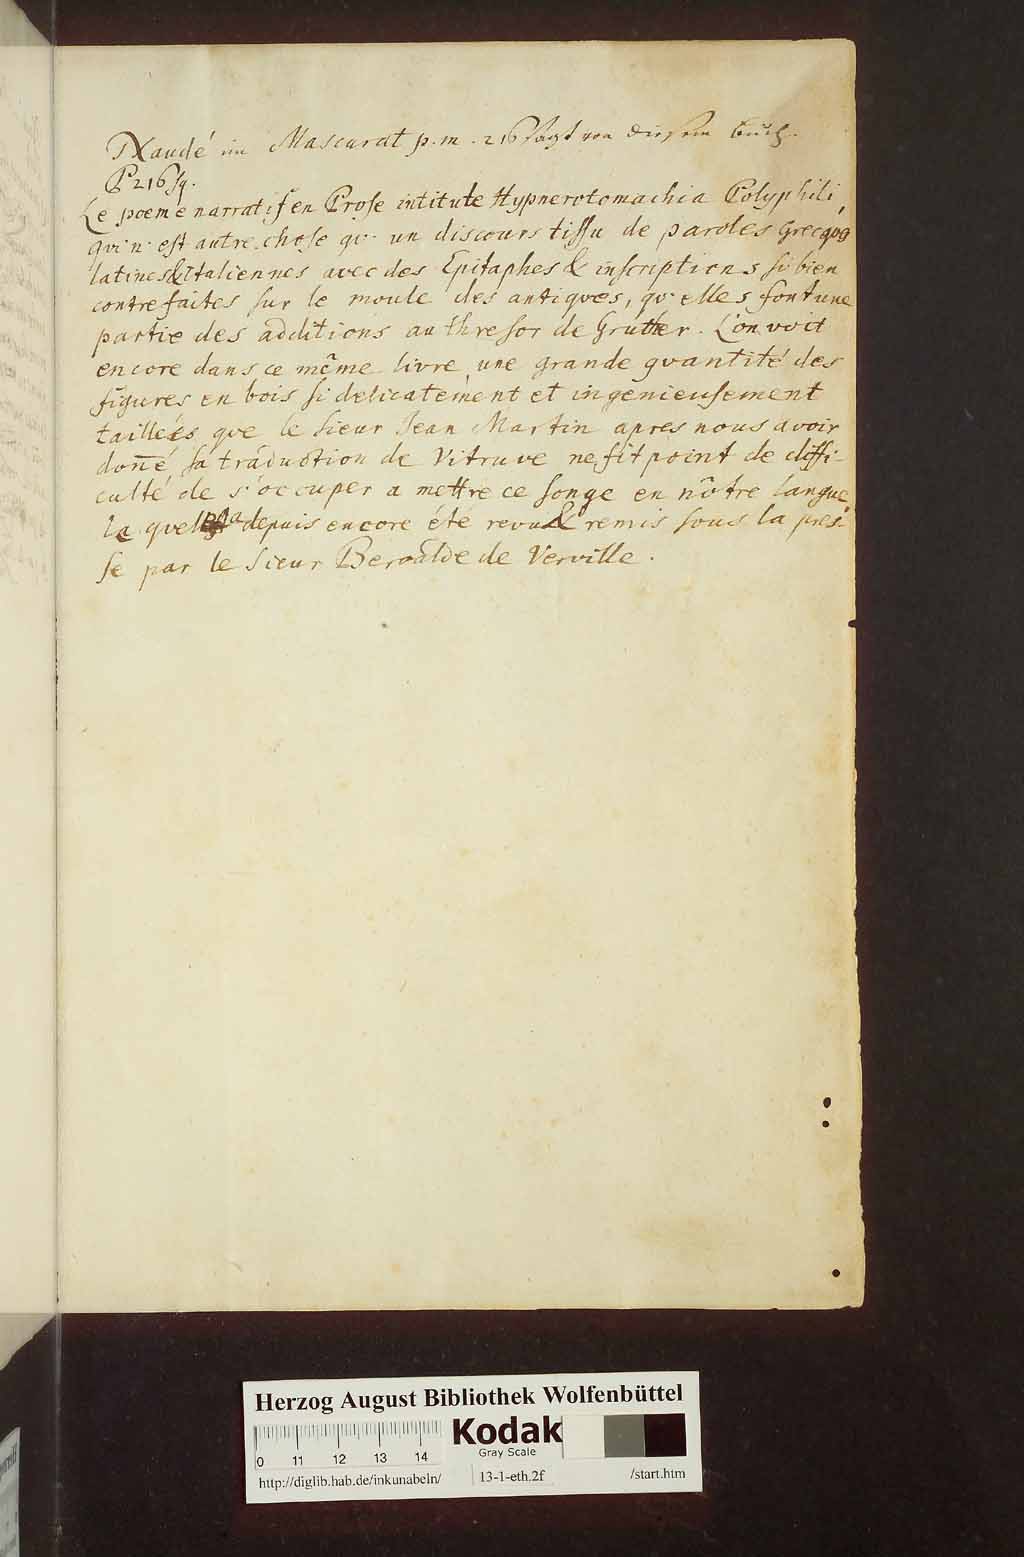 Naudé im Mascurat p.m. 216 sagt von diesem buch.
P 216 sq.
Le poeme narratif en Prose intitute Hypnerotomachia Polyphili,
qvi n'est autre chose qv' un discours tissu de paroles Grecqvs
latines & Italiennes avec des Epitaphes & inscriptions si bien
contrefaites sur le moule des antiqves, qv'elles font une
partie des additions au thresor de Grutter. L'on voit
encore dans ce même livre une grande qvantité des
figures en bois si delicatement et ingenieusement
taillees qve le Sieur Jean Martin apres nous avoir
doñé sa traduction de Vitruve ne fit point de diffi-
culté de s'occuper a mettre ce songe en nôtre langue,
la qvelle a depuis encore été revu & remis sous la pres-
se par le Sieur Beroalde de Verville.
Herzog August Bibliothek Wolfenbüttel
Kodak
Gray Scale
0 11 12 13 14
http://diglib.hab.de/inkunabeln/ 13-1-eth.2f /start.htm